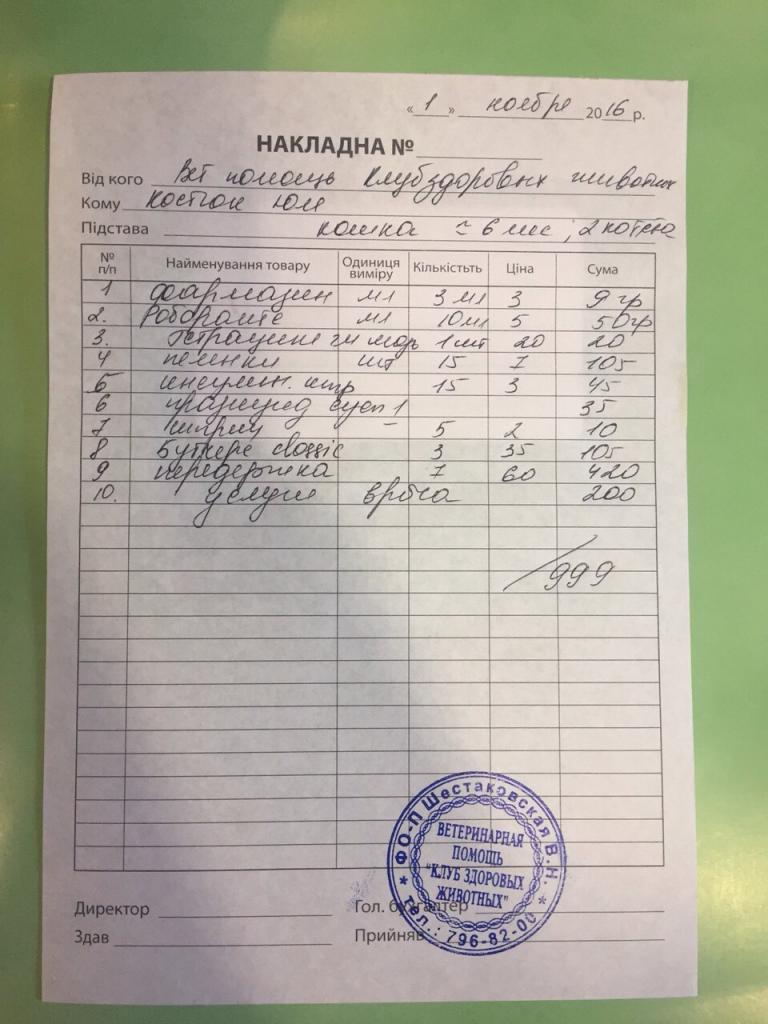 « 1 » ноября 2016 р.
НАКЛАДНА №
Від кого Вет помощь Клуб здоровых животных
Кому Костюк Юл
Підстава кошка ≈ 6 мес ; 2 котета
№ п/п Найменування товару Одиниця виміру Кількістьть Ціна Сума
1 фармазин мл 3 мл 3 9 гр
2. мл 10 мл 5 50 гр
3. 1 шт 20 20
4 пеленки шт 15 7 105
5 инсулин. шпр 15 3 45
6 1 35
7 – 5 2 10
8 classic 3 35 105
9 передержка 7 60 420
10. услуги врача 200
/999
ФО-П Шестаковская В.Н.
ВЕТЕРИНАРНАЯ
ПОМОЩЬ
"КЛУБ ЗДОРОВЫХ
ЖИВОТНЫХ"
* тел.: 796-82-00 *
Директор Гол. бухгалтер
Здав Прийняв